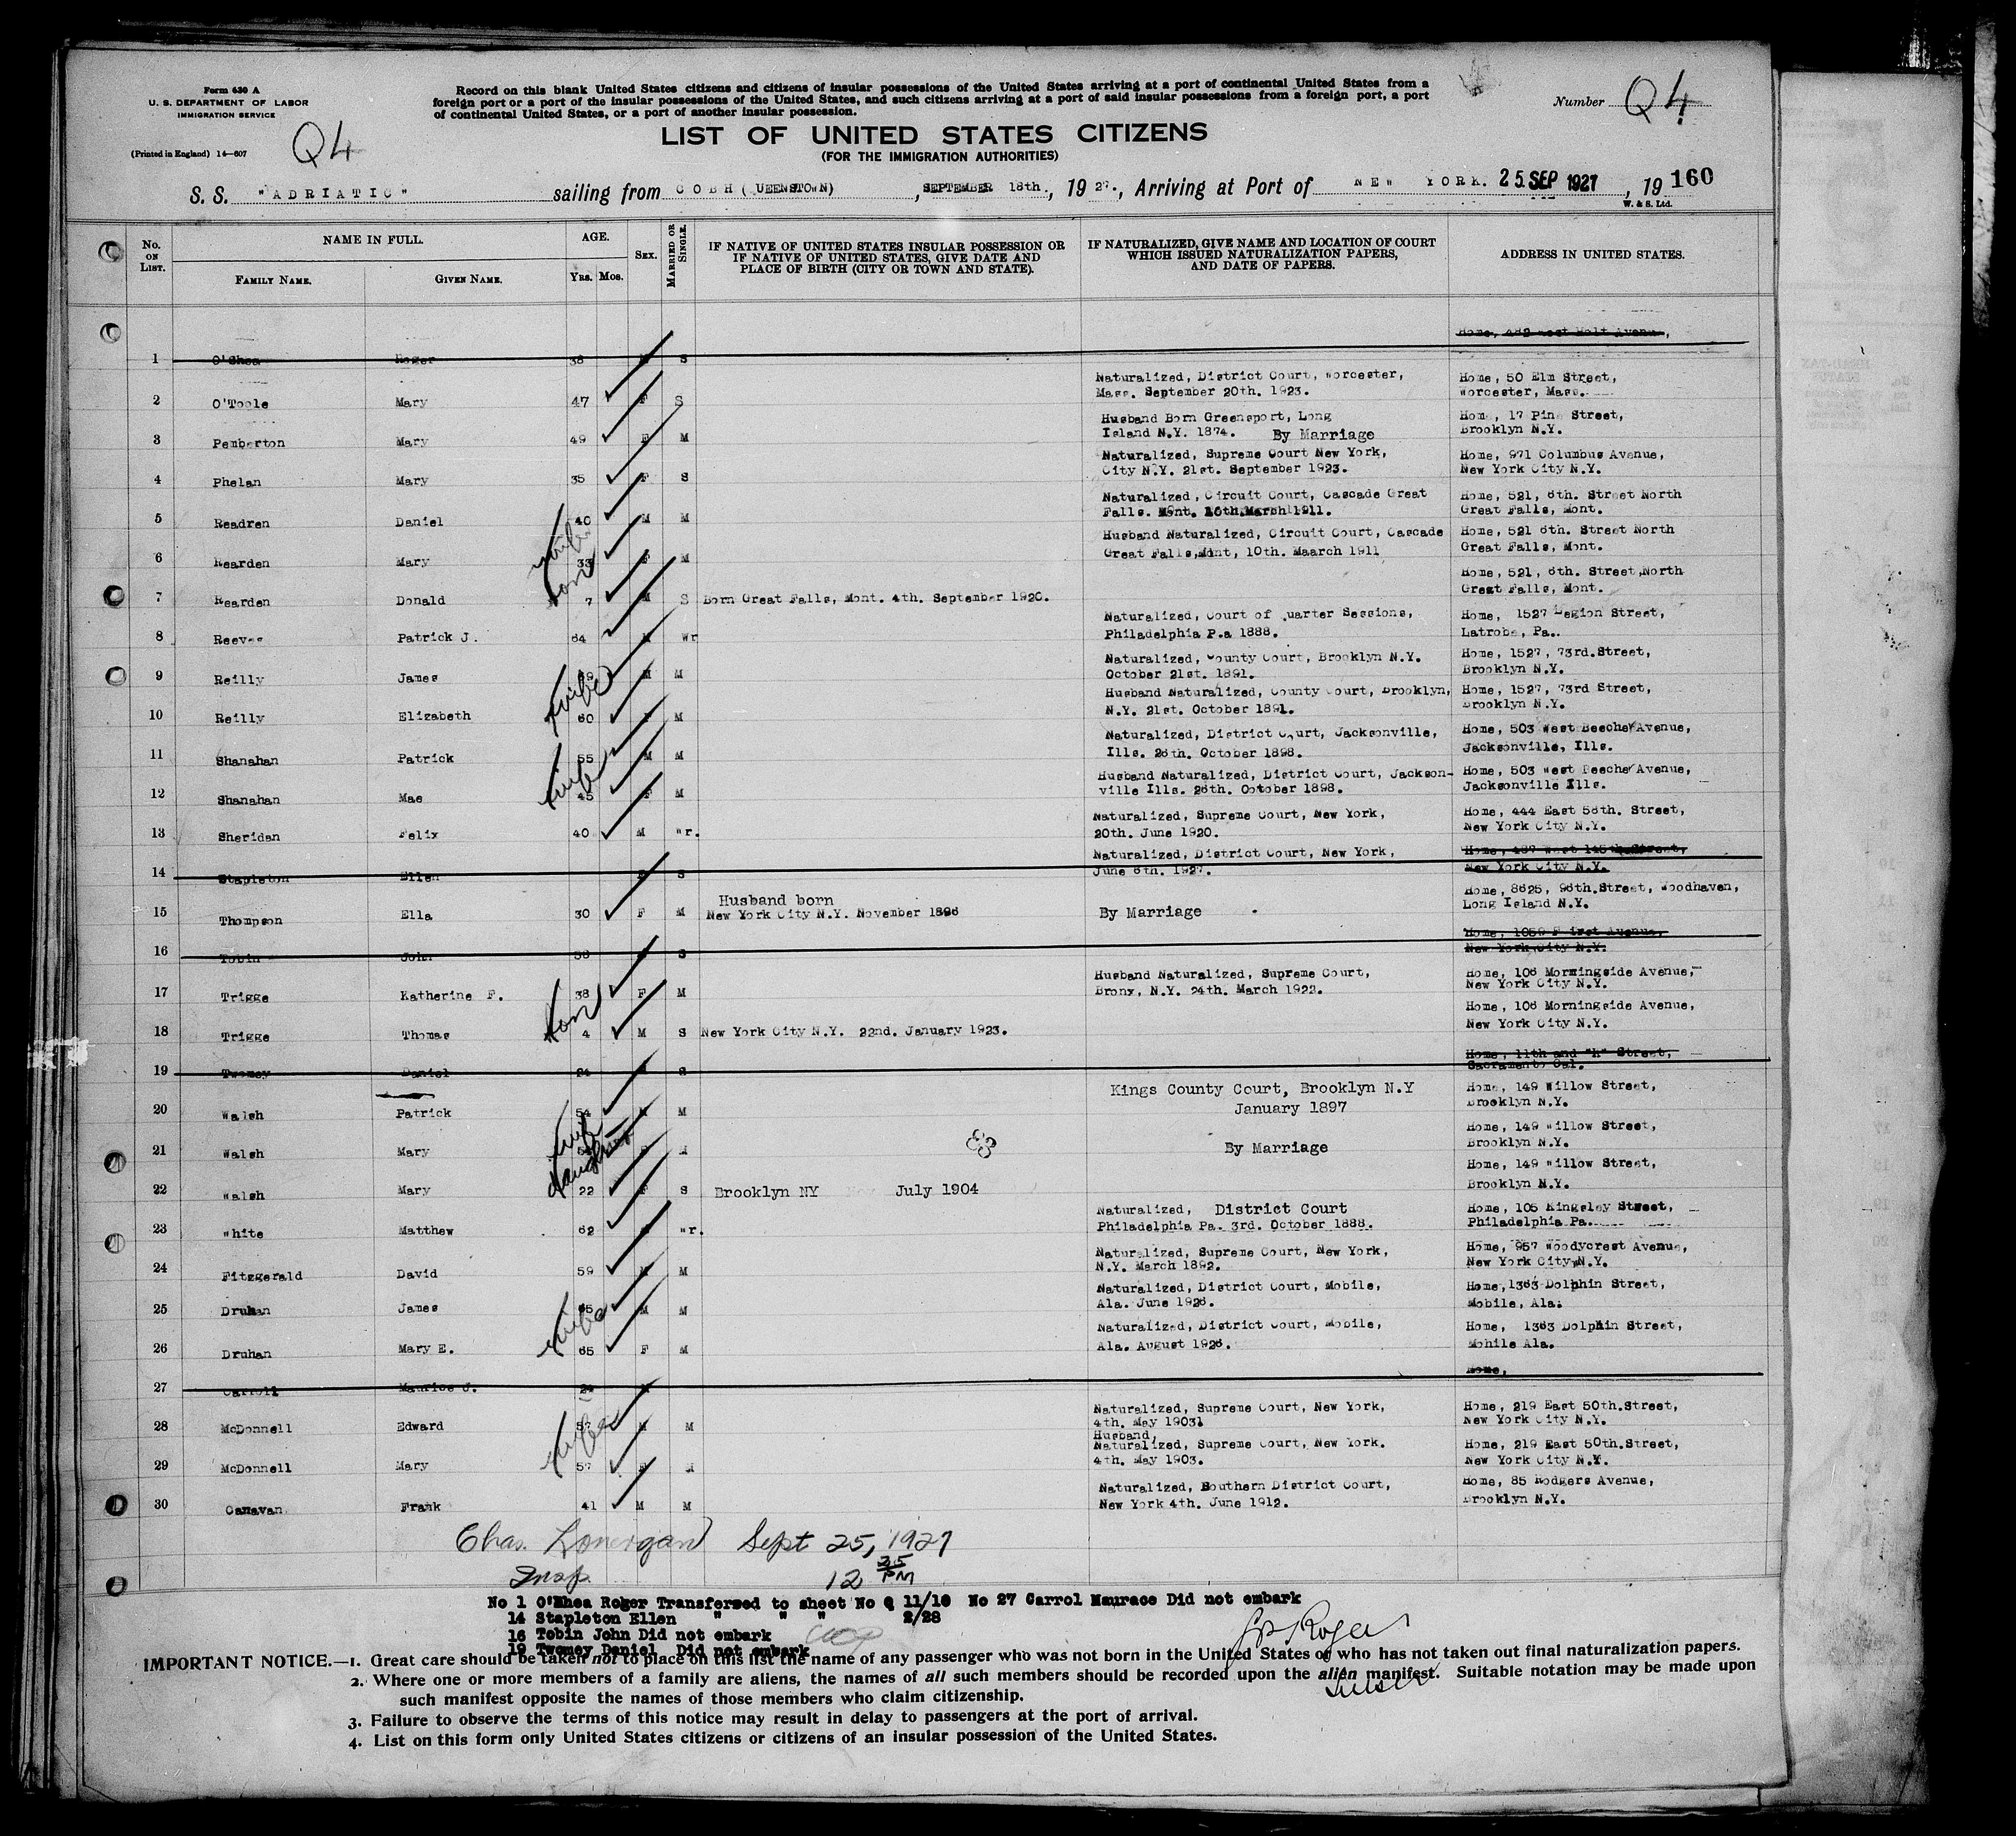 Form 630 A
U. S. DEPARTMENT OF LABOR
IMMIGRATION SERVICE
(Printed in England) 14—607
Q4
Record on this blank United States citizens and citizens of insular possessions of the United States arriving at a port of continental United States from a
foreign port or a port of the insular possessions of the United States, and such citizens arriving at a port of said insular possessions from a foreign port, a port
of continental United States, or a port of another insular possession.
Number Q4
LIST OF UNITED STATES CITIZENS
(FOR THE IMMIGRATION AUTHORITIES)
S. S. "ADRIATIC" sailing from COBH ( UEENSTOWN) , SEPTEMBER 18th., 19 27., Arriving at Port of NEW YORK. 25 SEP 1927 , 19 160
W. & S. Ltd.
No. ON LIST. NAME IN FULL. FAMILY NAME. GIVEN NAME. AGE. YRS. MOS. SEX. MARRIED OR SINGLE. IF NATIVE OF UNITED STATES INSULAR POSSESSION OR IF NATIVE OF UNITED STATES, GIVE DATE AND PLACE OF BIRTH (CITY OR TOWN AND STATE). IF NATURALIZED, GIVE NAME AND LOCATION OF COURT WHICH ISSUED NATURALIZATION PAPERS, AND DATE OF PAPERS. ADDRESS IN UNITED STATES.
Home, 489 west Holt Avenue,
1 O'Shea Roger 38 S
Naturalized, District Court, Worcester, Home, 50 Elm Street,
2 O'Toole Mary 47 F S Mass. September 20th. 1923. Worcester, Mass.
Husband Born Greensport, Long Home, 17 Pine Street,
3 Pemberton Mary 49 F M Island N.Y. 1874. By Marriage Brooklyn N.Y.
Naturalized, Supreme Court New York, Home, 971 Columbus Avenue,
4 Phelan Mary 35 F S City N.Y. 21st. September 1923. New York City N.Y.
Naturalized, Circuit Court, Cascade Great Home, 521, 6th. Street North
5 Readren Daniel 40 M M Falls. Mont. 10th March 1911. Great Falls, Mont.
wife Husband Naturalized, Circuit Court, Cascade Home, 521 6th. Street North
6 Rearden Mary 33 F M Great Falls, Mont, 10th. Maarch 1911 Great Falls, Mont.
son Home, 521, 6th. Street, North
7 Rearden Donald 7 M S Born Great Falls, Mont. 4th. September 1920. Great Falls, Mont.
Naturalized, Court of uarter Sessions, Home, 1527 Legion Street,
8 Reeves Patrick J. 64 M Wr Philadelphia P.a 1888. Latrobe, Pa..
Naturalized, County Court, Brooklyn N.Y. Home, 1527, 73rd. Street,
9 Reilly James M M October 21st. 1891. Brooklyn N.Y.
wife Husband Naturalized, County Court, Brooklyn, Home, 1527, 73rd Street,
10 Reilly Elizabeth 60 F M N.Y. 21st. October 1891. Brooklyn N.Y.
Naturalized, District Court, Jacksonville, Home, 503 West Beecher Avenue,
11 Shanahan Patrick 55 M M Ills. 26th. October 1898. Jacksonville, Ills.
wife Husband Naturalized, District Court, Jackson- Home, 503 West Beecher Avenue,
12 Shanahan Mae 45 F M ville Ills. 26th. October 1898. Jacksonville Ills.
Naturalized, Supreme Court, New York, Home, 444 East 58th. Street,
13 Sheridan Felix 40 M Wr. 20th. June 1920. New York City N.Y.
Naturalized, District Court, New York, Home, 487 West 145th Street,
14 Stapleton Ellen F S June 6th. 1927. New York City N.Y.
Husband born Home, 8625, 96th. Street, Woodhaven,
15 Thompson Ella 30 F M New York City N.Y. November 1896 By Marriage Long Island N.Y.
Home, 1059 First Avenue,
16 Tobin John S New York City N.Y.
Husband Naturalized, Supreme Court, Home, 106 Morningside Avenue,
17 Trigge Katherine F. 38 F M Bronx, N.Y. 24th. March 1922. New York City N.Y.
son Home, 106 Morningside Avenue,
18 Trigge Thomas 4 M S New York City N.Y. 22nd. January 1923. New York City N.Y.
Home, 11th and "h" Street,
19 Twomey Daniel 24 S Sacramento Cal.
Kings County Court, Brooklyn N.Y Home, 149 Willow Street,
20 Walsh Patrick 54 M M January 1897 Brooklyn N.Y.
wife Home, 149 Willow Street,
21 Walsh Mary F M By Marriage Brooklyn N.Y.
daughter Home, 149 Willow Street,
22 Walsh Mary 22 F S Brooklyn NY July 1904 Brooklyn N.Y.
Naturalized, District Court Home, 105 Kingsley Street,
23 White Matthew 62 Wr. Philadelphia Pa. 3rd. October 1888. Philadelphia Pa.
Naturalized, Supreme Court, New York, Home, 957 Woodycrest Avenue,
24 Fitzgerald David 59 M M N.Y. March 1892. New York City N.Y.
Naturalized, District Court, Mobile, Home, 1363 Dolphin Street,
25 Druhan James 65 M M Ala. June 1926. Mobile, Ala.
wife Naturalized, District Court, Mobile, Home, 1363 Dolphin Street,
26 Druhan Mary E. 65 F M Ala. August 1926. Mobile Ala.
Home,
27 Carroll Maurice J. 24 M
Naturalized, Supreme Court, New York, Home, 219 East 50th. Street,
28 McDonnell Edward 57 M M 4th. May 1903 New York City N.Y.
Husband,
wife Naturalized, Supreme Court, New York. Home, 219 East 50th. Street,
29 McDonnell Mary 57 F M 4th. May 1903. New York City N.Y.
Naturalized, Southern District Court, Home, 85 Rodgers Avenue,
30 Canavan Frank 41 M M New York 4th. June 1912. Brooklyn N.Y.
Chas. Lonergan Sept 25, 1927
Insp. 12 25 PM
No 1 O'Shea Roger Transferred to sheet No Q 11/10 No 27 Carrol Maurace Did not embark
14 Stapleton Ellen " " " 2/28
16 Tobin John Did not embark
19 Twomey Daniel Did not embark
IMPORTANT NOTICE.—1. Great care should be taken not to place on this list the name of any passenger who was not born in the United States or who has not taken out final naturalization papers.
2. Where one or more members of a family are aliens, the names of all such members should be recorded upon the alien manifest. Suitable notation may be made upon
such manifest opposite the names of those members who claim citizenship.
3. Failure to observe the terms of this notice may result in delay to passengers at the port of arrival.
4. List on this form only United States citizens or citizens of an insular possession of the United States.